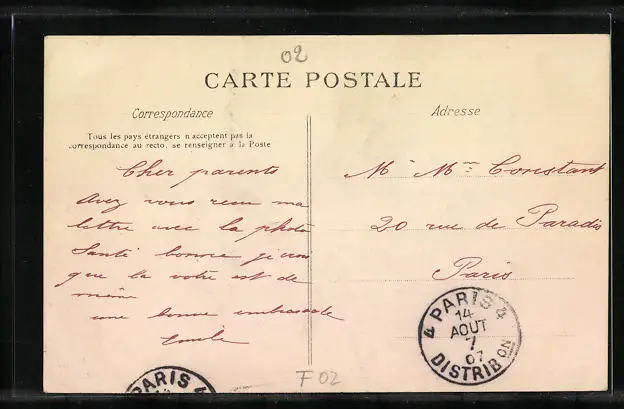 02
CARTE POSTALE
Correspondance
Adresse
Tous les pays étrangers n'acceptent pas la
correspondance au recto, se renseigner à la Poste
Cher parents
avez vous recu ma
lettre avec la photo
Santé bonne j'
que la votre est de
même
une bonne embrassade
Emile
M Mme Constant
20 rue de Paradis
Paris
4 PARIS 4
14
AOUT
7
07
DISTRIBON
PARIS 4
F 02